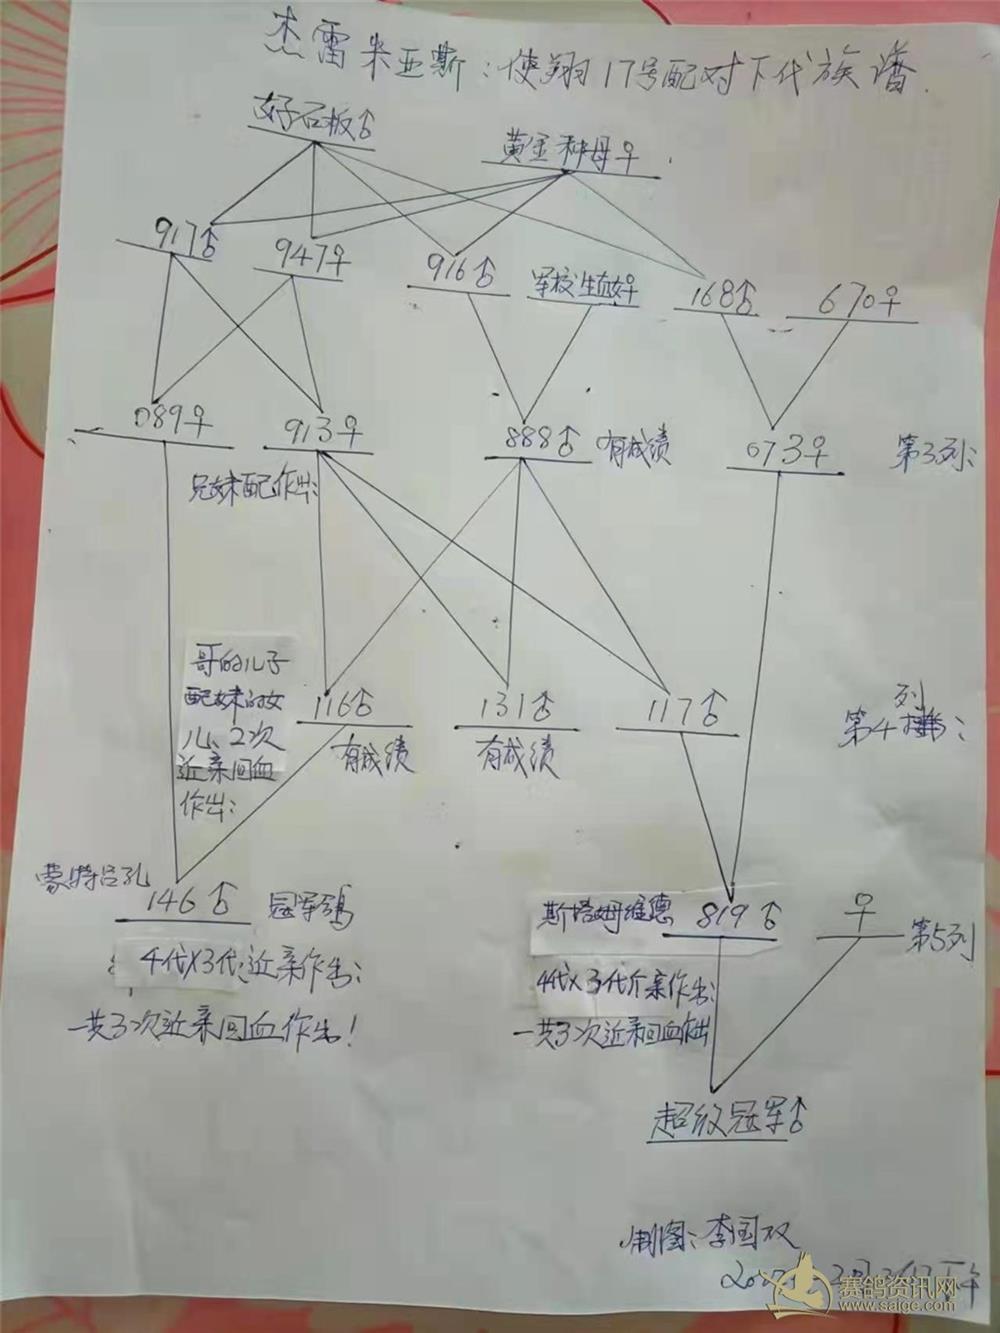 杰雷米亚斯:使翔17号配对下代族谱.
好石板♂ 黄金种母♀
917♂ 947♀ 916♂ 军校生直女♀ 168♂ 670♀
089♀ 913♀ 888♂ 有成绩 073♀ 第3列:
兄妹配作出:
哥的儿子
配妹的女
儿、2次
近亲回血
作出:
116♂ 131♂ 117♂ 第4列:
有成绩 有成绩
蒙特吕孔
146♂ 冠军鸽
4代X3代:近亲作出:
一共3次近亲回血作出!
斯塔姆维德 819♂ ♀ 第5列
4代X3代近亲作出:
一共3次近亲回血作出
超级冠军♂
制图:李国双
赛鸽资讯网
www.saige.com